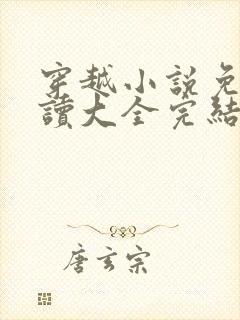 穿越小說免
讀大全完結
唐玄宗